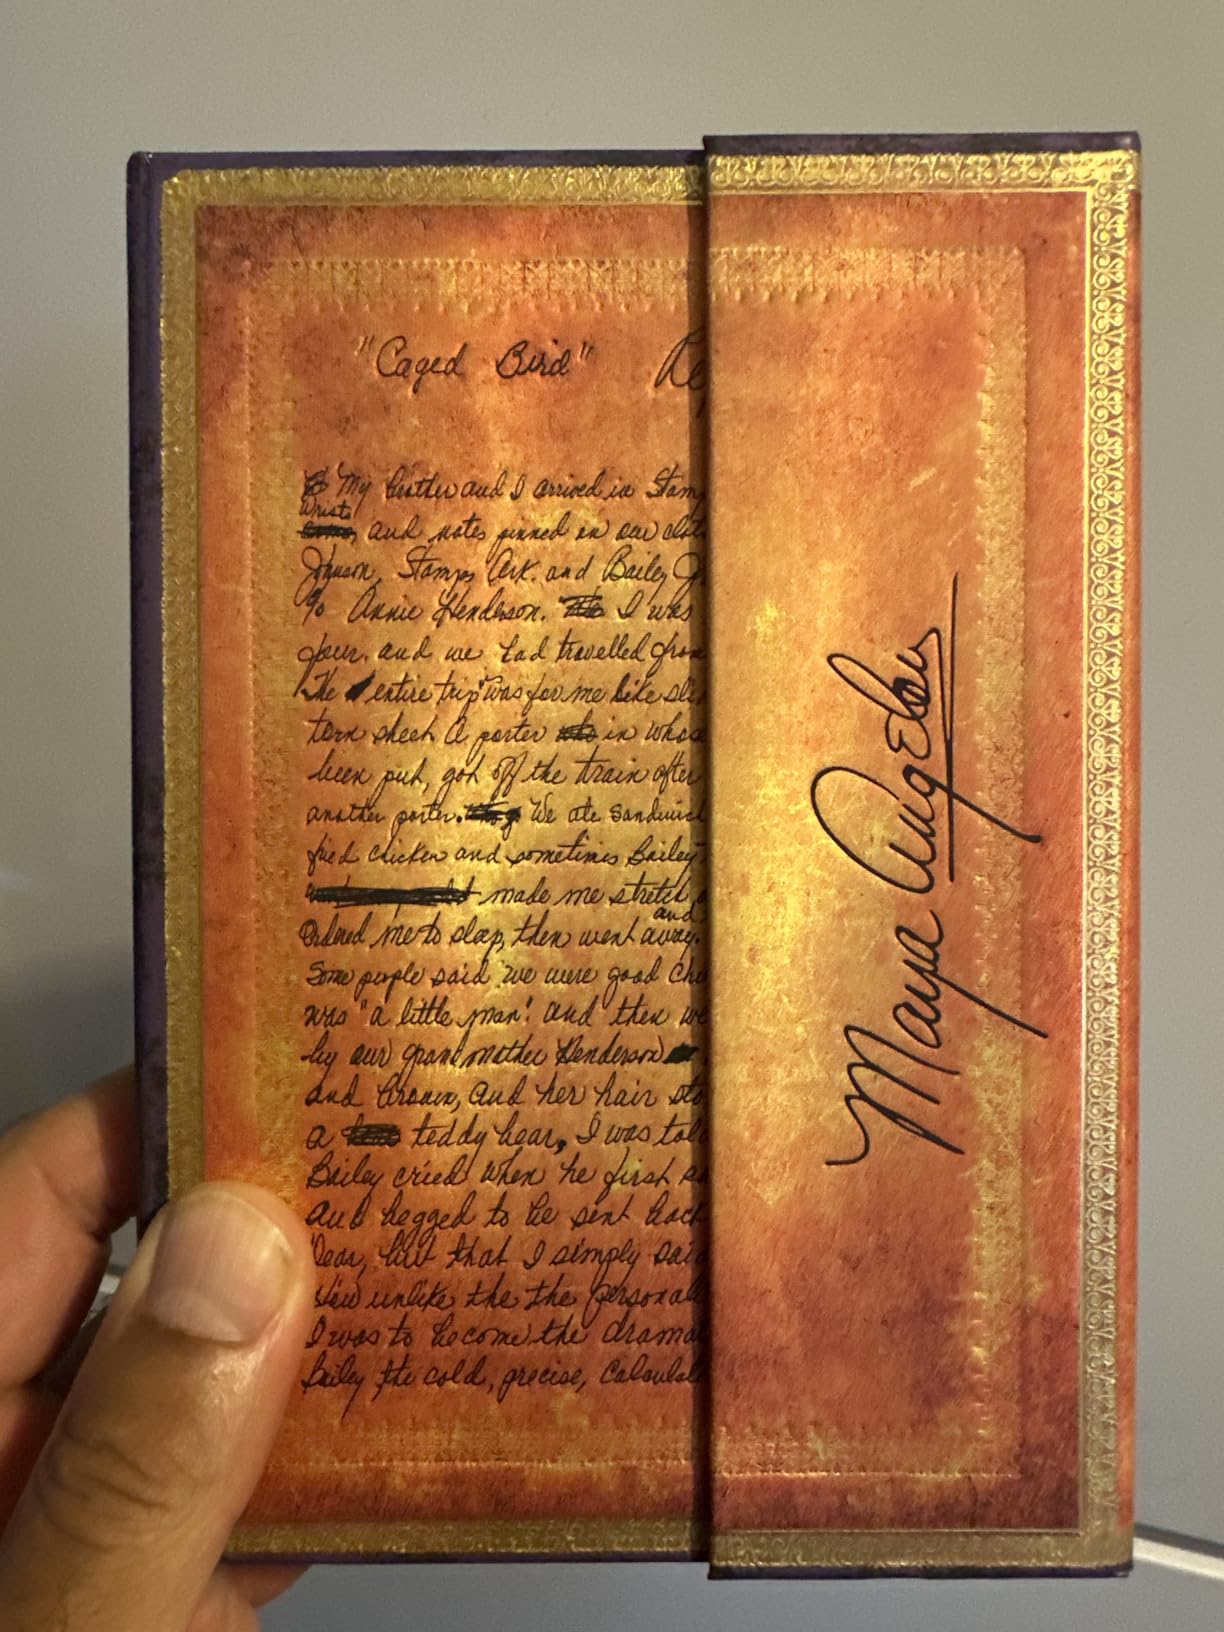 "Caged Bird" Re
My brother and I arrived in Stam
wrists
and notes pinned on our clot
Johnson, Stamps Ark. and Bailey Jo
c/o Annie Henderson. I was
four. and we had travelled from
The entire trip was for me like sle
torn sheet. A porter who in whose
been put, got off the train after
another porter. We ate sandwich
fried chicken and sometimes Bailey
made me stretch o
and
ordered me to sleep, then went away.
Some people said we were good chi
was "a little man". and then we
by our grandmother Henderson
and brown, and her hair sto
a teddy bear, I was told
Bailey cried when he first sa
and begged to be sent back
but that I simply said
How unlike the the personali
I was to become the drama
Bailey the cold, precise, calculat
Maya Angelou